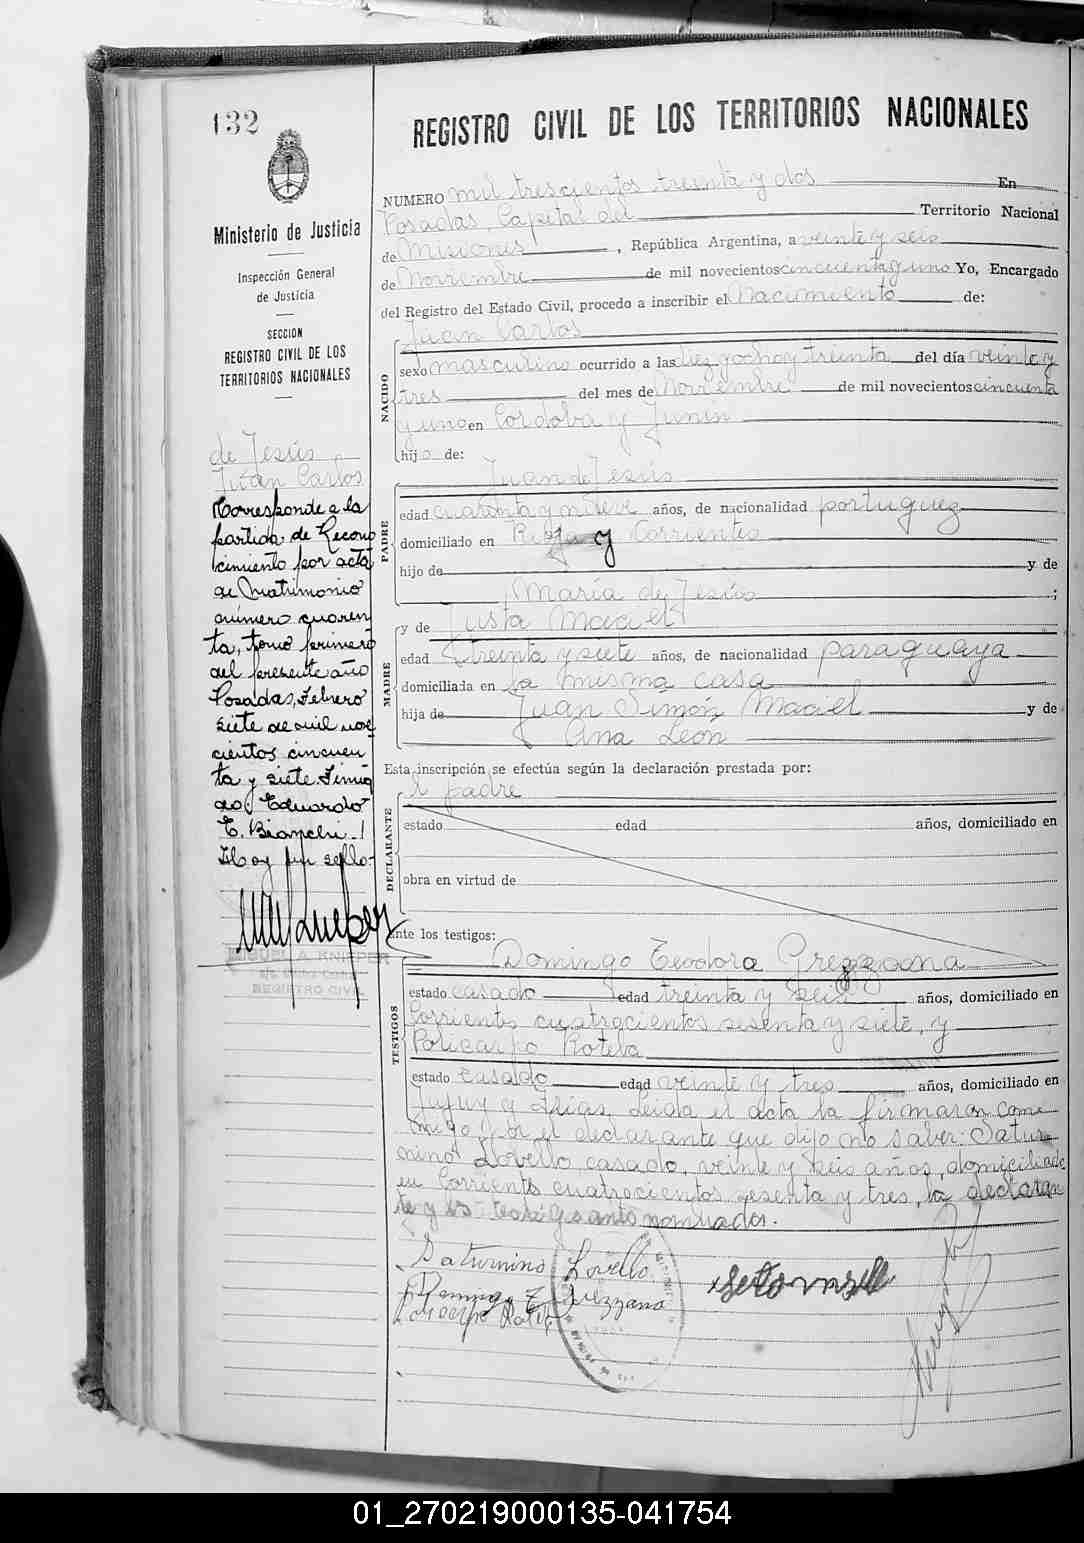 132
Ministerio de Justicia
Inspección General
de Justicia
SECCION
REGISTRO CIVIL DE LOS
TERRITORIOS NACIONALES
de Jesús
Juan Carlos
Corresponde a la
partida de Recono
cimiento por acta
de Matrimonio
número cuaren
ta, tomo primero
del presente año
Posadas, Febrero
siete de mil nove
cientos cincuen
ta y siete. Firma
do. Eduardo
E. Bianchi.
Hay un sello.
MIGUEL A. KNIPPER
REGISTRO CIVIL
REGISTRO CIVIL DE LOS TERRITORIOS NACIONALES
NUMERO mil trescientos treinta y dos En
Posadas, Capital del Territorio Nacional
de Misiones, República Argentina, a veinte y seis
de Noviembre de mil novecientos cincuenta y uno Yo, Encargado
del Registro del Estado Civil, procedo a inscribir el Nacimiento de:
NACIDO
Juan Carlos
sexo masculino ocurrido a las diez y ocho y treinta del día veinte y
tres del mes de Noviembre de mil novecientos cincuenta
y uno en Cordoba y Junin
hijo de:
PADRE
Juan de Jesús
edad cuarenta y nueve años, de nacionalidad portuguez
domiciliado en Rioja y Corrientes
hijo de y de
María de Jesús;
MADRE
y de Justa Maciel
edad treinta y siete años, de nacionalidad paraguaya
domiciliada en la misma casa
hija de Juan Simón Maciel y de
Ana León
Esta inscripción se efectúa según la declaración prestada por:
DECLARANTE
el padre
estado edad años, domiciliado en
obra en virtud de
ante los testigos:
TESTIGOS
Domingo Teodoro Grezzana
estado casado edad treinta y seis años, domiciliado en
Corrientes cuatrocientos sesenta y siete, y
Policarpo Rotela
estado casado edad veinte y tres años, domiciliado en
Jujuy y Frias. Leida el acta la firmaron con
migo por el declarante que dijo no saber: Satur
nino Lovello, casado, veinte y seis años, domiciliado
en Corrientes cuatrocientos sesenta y tres, la declaran
te y los testigos nombrados.
Saturnino Lovello
Domingo T. Grezzana
01_270219000135-041754